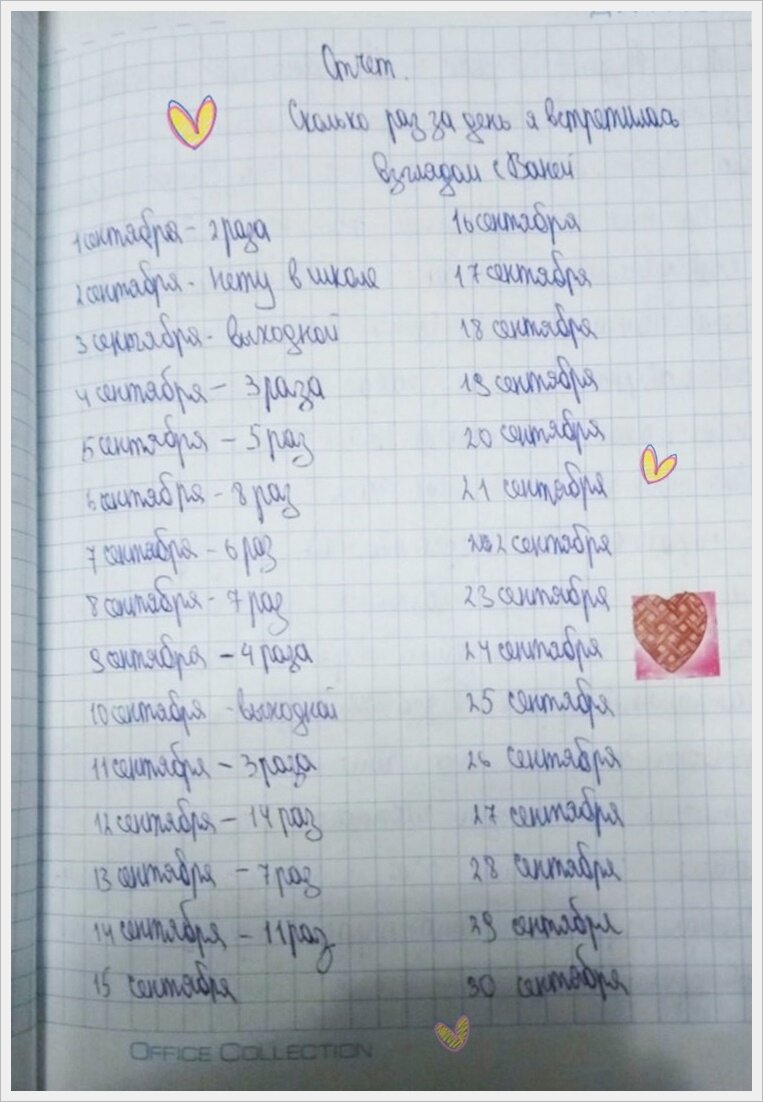 Отчет.
Сколько раз за день я встретилась
взглядом с Ваней
1 сентября - 2 раза
2 сентября - нету в школе
3 сентября - выходной
4 сентября - 3 раза
5 сентября - 5 раз
6 сентября - 8 раз
7 сентября - 6 раз
8 сентября - 7 раз
9 сентября - 4 раза
10 сентября - выходной
11 сентября - 3 раза
12 сентября - 14 раз
13 сентября - 7 раз
14 сентября - 11 раз
15 сентября
16 сентября
17 сентября
18 сентября
19 сентября
20 сентября
21 сентября
22 сентября
23 сентября
24 сентября
25 сентября
26 сентября
27 сентября
28 сентября
29 сентября
30 сентября
OFFICE COLLECTION